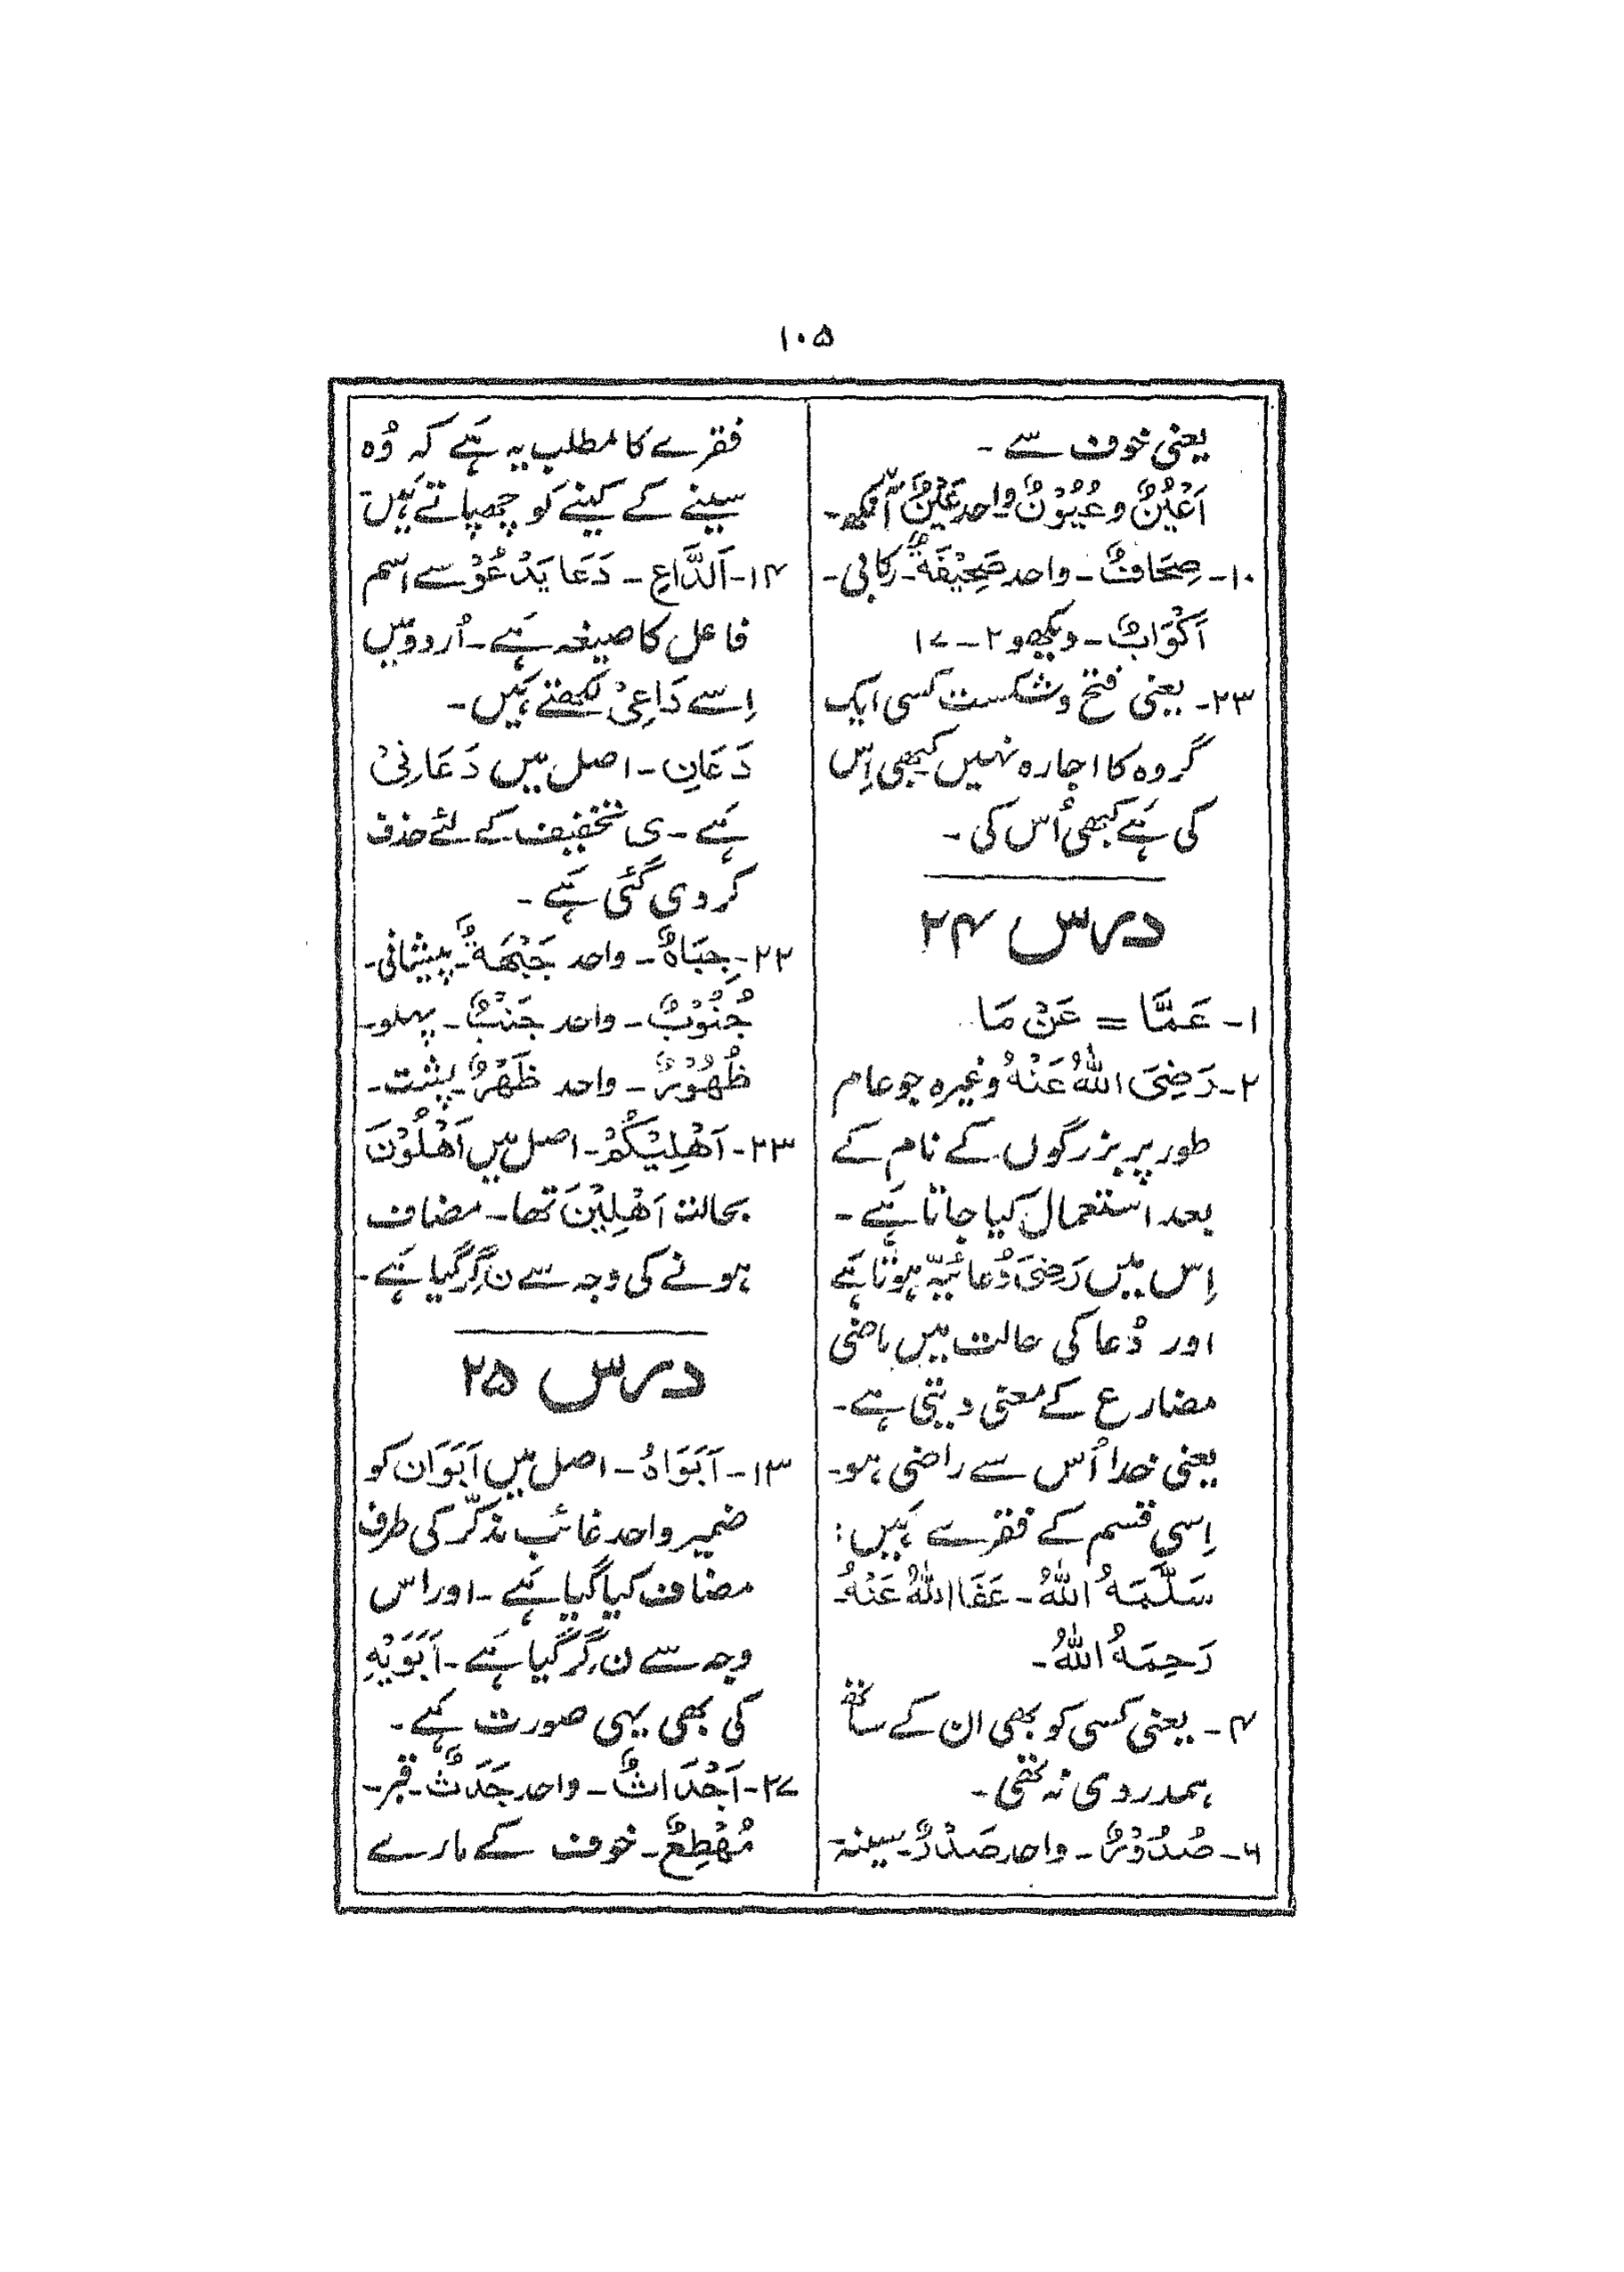 ۱۰۵
یعنی خوف سے ۔
اَعْیُنٌ و عُیُوْنٌ واحد عَیْنٌ آنکھ۔
۱۰۔ صِحَافٌ۔ واحد صَحِیْفَۃٌ۔ رکابی۔
اَکْوَابٌ۔ دیکھو ۲۔۱۷
۲۳۔ یعنی فتح و شکست کسی ایک
گروہ کا اجارہ نہیں کبھی اِس
کی ہَے کبھی اُس کی ۔
درس ۲۴
۱۔ عَمَّا = عَنْ مَا
۲۔ رَضِیَ اللّٰہُ عَنْہُ وغیرہ جو عام
طور پر بزرگوں کے نام کے
بعد استعمال کیا جاتا ہَے ۔
اِس میں رَضِیَ دُعائیہ ہوتا ہَے
اور دُعا کی حالت میں ماضی
مضارع کے معنی دیتی ہے۔
یعنی خدا اُس سے راضی ہو۔
اِسی قسم کے فقرے ہَیں :
سَلَّمَہُ اللّٰہُ۔ عَفَا اللّٰہُ عَنْہُ۔
رَحِمَہُ اللّٰہُ۔
۴۔ یعنی کسی کو بھی ان کے ساتھ
ہمدردی نہ تھی ۔
۶۔ صُدُوْرٌ۔ واحد صَدْرٌ۔ سینہ
فقرے کا مطلب یہ ہَے کہ وُہ
سینے کے کینے کو چھپاتے ہَیں۔
۱۴۔ اَلدَّاعِ ۔ دَعَا یَدْعُوْ سے اسم
فاعل کا صیغہ ہَے۔ اُردو میں
اِسے دَاعِیْ لکھتے ہَیں ۔
دَعَانِ ۔ اصل میں دَعَانِیْ
ہَے ۔ ی تخفیف کے لئے حذف
کر دی گئی ہَے ۔
۲۲۔ جِبَاہٌ ۔ واحد جَبْھَۃٌ۔ پیشانی۔
جُنُوْبٌ ۔ واحد جَنْبٌ۔ پہلو۔
ظُھُوْرٌ ۔ واحد ظَھْرٌ۔ پشت۔
۲۳۔ اَھْلِیْکُمْ۔ اصل میں اَھْلُوْنَ
بحالت اَھْلِیْنَ تھا۔ مضاف
ہونے کی وجہ سے ن گِر گیا ہَے۔
درس ۲۵
۱۳۔ اَبَوَاہُ ۔ اصل میں اَبَوَان کو
ضمیر واحد غائب مذکّر کی طرف
مضاف کیا گیا ہَے ۔ اور اس
وجہ سے ن گِر گیا ہَے ۔ اَبَوَیْہِ
کی بھی یہی صورت ہَے ۔
۲۷۔ اَجْدَاثٌ ۔ واحد جَدَثٌ۔ قبر۔
مُھْطِعٌ۔ خوف کے مارے